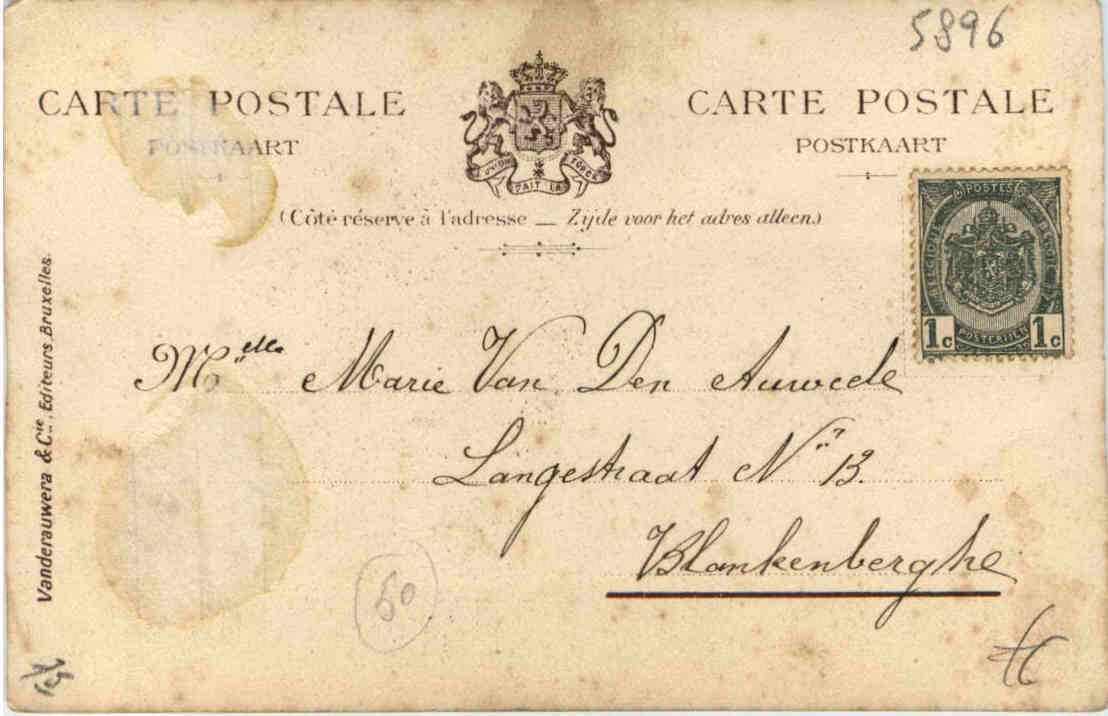 5896
CARTE POSTALE
POSTKAART
L'UNION FAIT LA FORCE
CARTE POSTALE
POSTKAART
(Côté réservé à l'adresse — Zijde voor het adres alleen.)
POSTES
BELGIQUE
1c POSTERIJEN 1c
Melle Marie Van Den Auweele
Langestraat No 13.
Blankenberghe
Vanderauwera & Cie, Editeurs, Bruxelles.
60